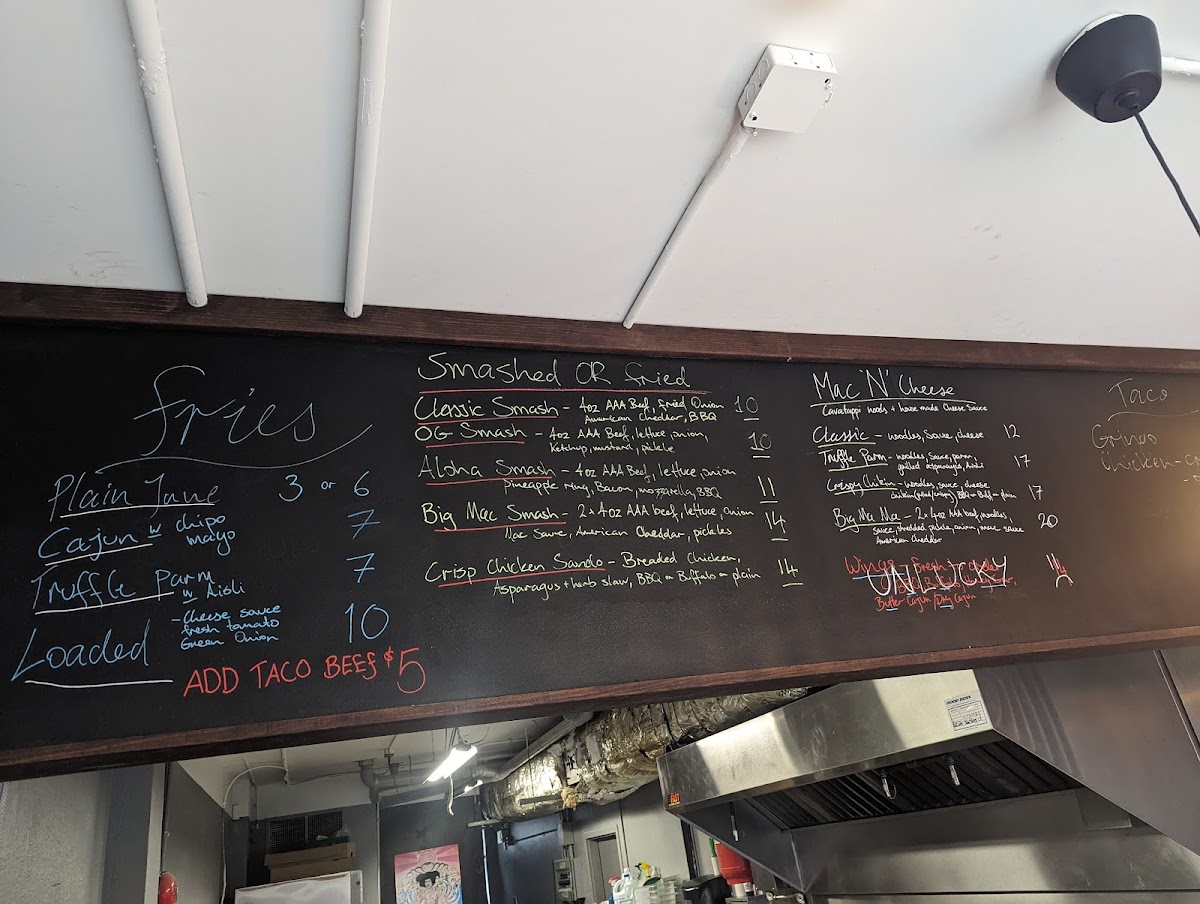 fries
Plain Jane 3 or 6
Cajun w chipo mayo 7
Truffle Parm w Aisli 7
Loaded - Cheese sauce 10
fresh tomato
Green Onion
ADD TACO BEEF $5
Smashed OR fried
Classic Smash - 4oz AAA Beef, fried Onion 10
American Cheddar, BBQ
OG Smash - 4oz AAA Beef, lettuce, onion, 10
Ketchup, mustard, pickle
Aloha Smash - 4oz AAA Beef, lettuce, onion 11
Pineapple ring, Bacon, mozzarella, BBQ
Big Mac Smash - 2x4oz AAA beef, lettuce, onion 14
Mac Sauce, American Cheddar, pickles
Crisp Chicken Sando - Breaded Chicken, 14
Asparagus + herb slaw, BBQ or Buffalo or plain
Mac 'N' Cheese
Cavatappi + house made Cheese Sauce
Classic - noodles, Sauce, cheese 12
Truffle Parm - noodles, Sauce, parm, 17
grilled asparagus, Aisli
Crispy Chikin - noodles, sauce, cheese 17
BBQ or Buff or plain
Big Ma Ma - 2x 4oz AAA beef, noodles, 20
sauce, shredded pickle, onion, mac sauce
American Cheddar
Wings
Butter Cajun / Dry Cajun
Taco
Gringo
Chicken-